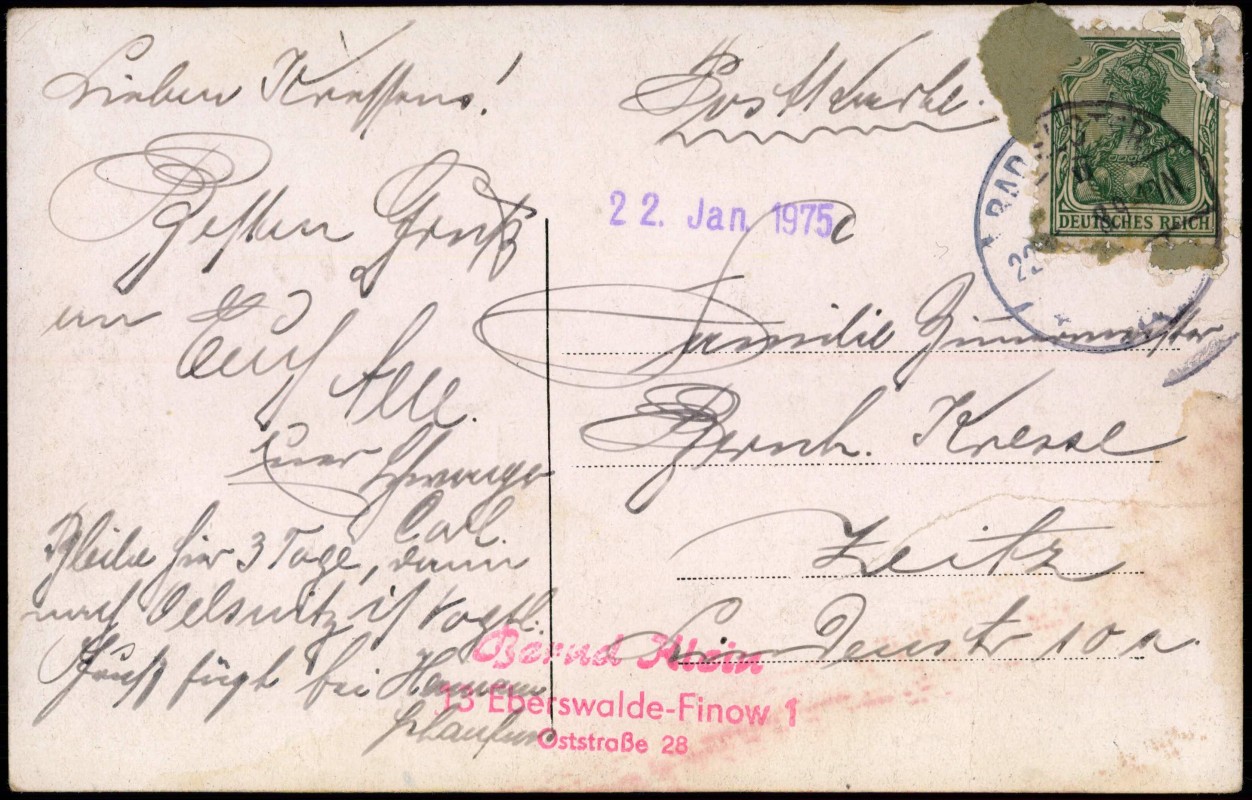 Lieben Kressens!
Besten Gruß
an
Euch
Alle.
Euer Schwager
Carl.
Bleibe hier 3 Tage, dann
nach Oelsnitz i/ Vogtl.
Gruß fügt bei Hermann
Postkarte.
22. Jan. 1975
DEUTSCHES REICH
BAD ELSTER
22
Familie Zimmermeister
Bernh. Kresse
Zeitz
Lindenstr 10 a.
Bernd Klein
13 Eberswalde-Finow 1
Oststraße 28